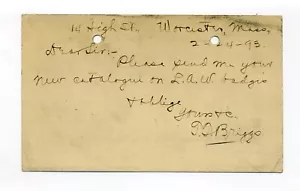 14 High St. Worcester, Mass,
2-14-93.
Dear Sir:-
Please send me your
new catalogue on L.A.W. badges
& oblige
Yours &c.
Briggs